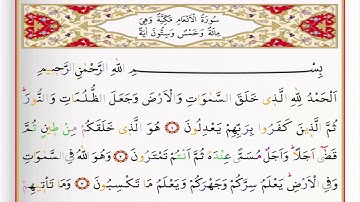 سُورَةُ الْاَنْعَامِ مَكِّيَّةٌ وَهِيَ
مِائَةٌ وَخَمْسٌ وَسِتُّونَ اٰيَةً
بِسْــــــــــــــــمِ اللّٰهِ الرَّحْمٰنِ الرَّحٖيمِ
اَلْحَمْدُ لِلّٰهِ الَّذٖى خَلَقَ السَّمٰوَاتِ وَالْاَرْضَ وَجَعَلَ الظُّلُمَاتِ وَالنُّورَؕ
ثُمَّ الَّذٖينَ كَفَرُوا بِرَبِّهِمْ يَعْدِلُونَ ١ هُوَ الَّذٖى خَلَقَكُمْ مِنْ طٖينٍ ثُمَّ
قَضٰٓى اَجَلًاؕ وَاَجَلٌ مُسَمًّى عِنْدَهُ ثُمَّ اَنْتُمْ تَمْتَرُونَ ٢ وَهُوَ اللّٰهُ فِى السَّمٰوَاتِ
وَفِى الْاَرْضِؕ يَعْلَمُ سِرَّكُمْ وَجَهْرَكُمْ وَيَعْلَمُ مَا تَكْسِبُونَ ٣ وَمَا تَاْتٖيهِمْ